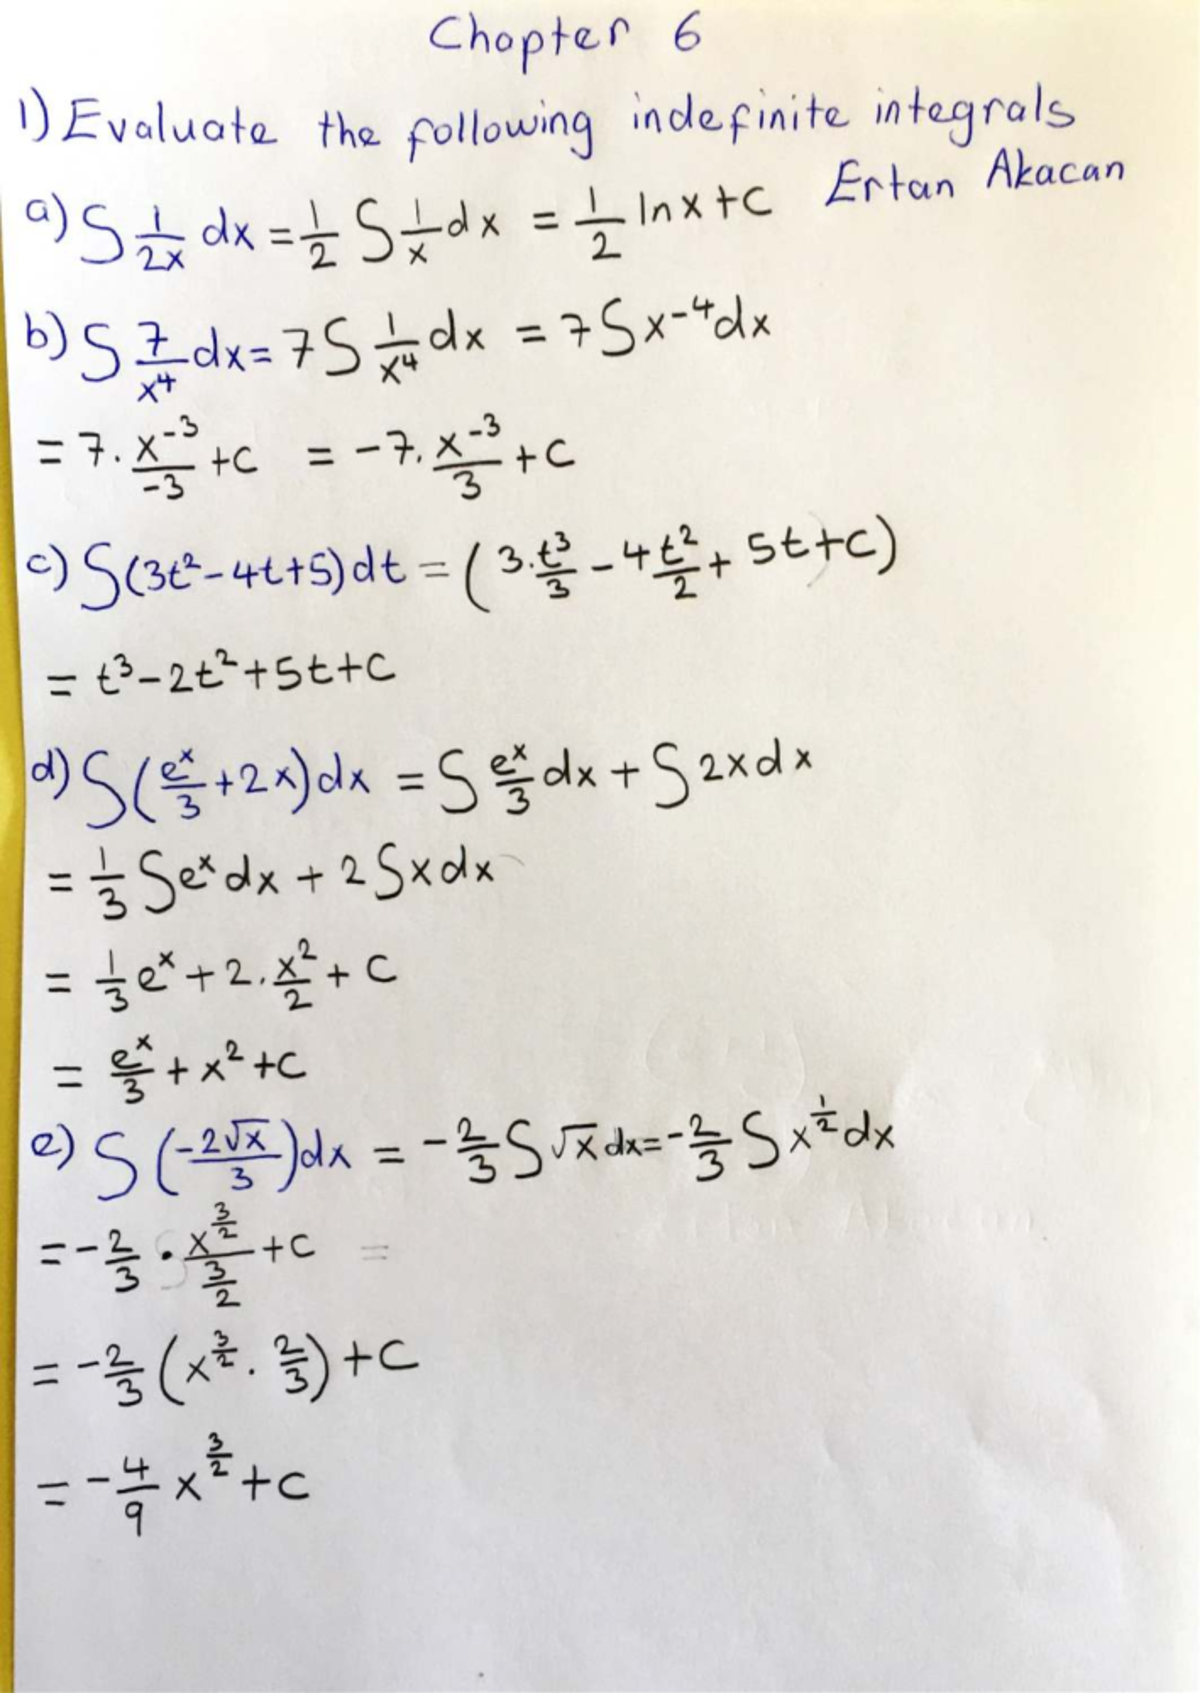 Chapter 6
1) Evaluate the following indefinite integrals
Ertan Akacan
a) ∫ 1/2x dx = 1/2 ∫ 1/x dx = 1/2 lnx + c
b) ∫ 7/x⁴ dx = 7 ∫ 1/x⁴ dx = 7 ∫ x⁻⁴ dx
= 7 . x⁻³/-3 + c = -7 . x⁻³/3 + c
c) ∫ (3t² - 4t + 5) dt = (3 . t³/3 - 4 t²/2 + 5t + c)
= t³ - 2t² + 5t + c
d) ∫ (eˣ/3 + 2x) dx = ∫ eˣ/3 dx + ∫ 2x dx
= 1/3 ∫ eˣ dx + 2 ∫ x dx
= 1/3 eˣ + 2 . x²/2 + c
= eˣ/3 + x² + c
e) ∫ (-2√x/3) dx = -2/3 ∫ √x dx = -2/3 ∫ x^(1/2) dx
= -2/3 . x^(3/2)/(3/2) + c =
= -2/3 (x^(3/2) . 2/3) + c
= -4/9 x^(3/2) + c